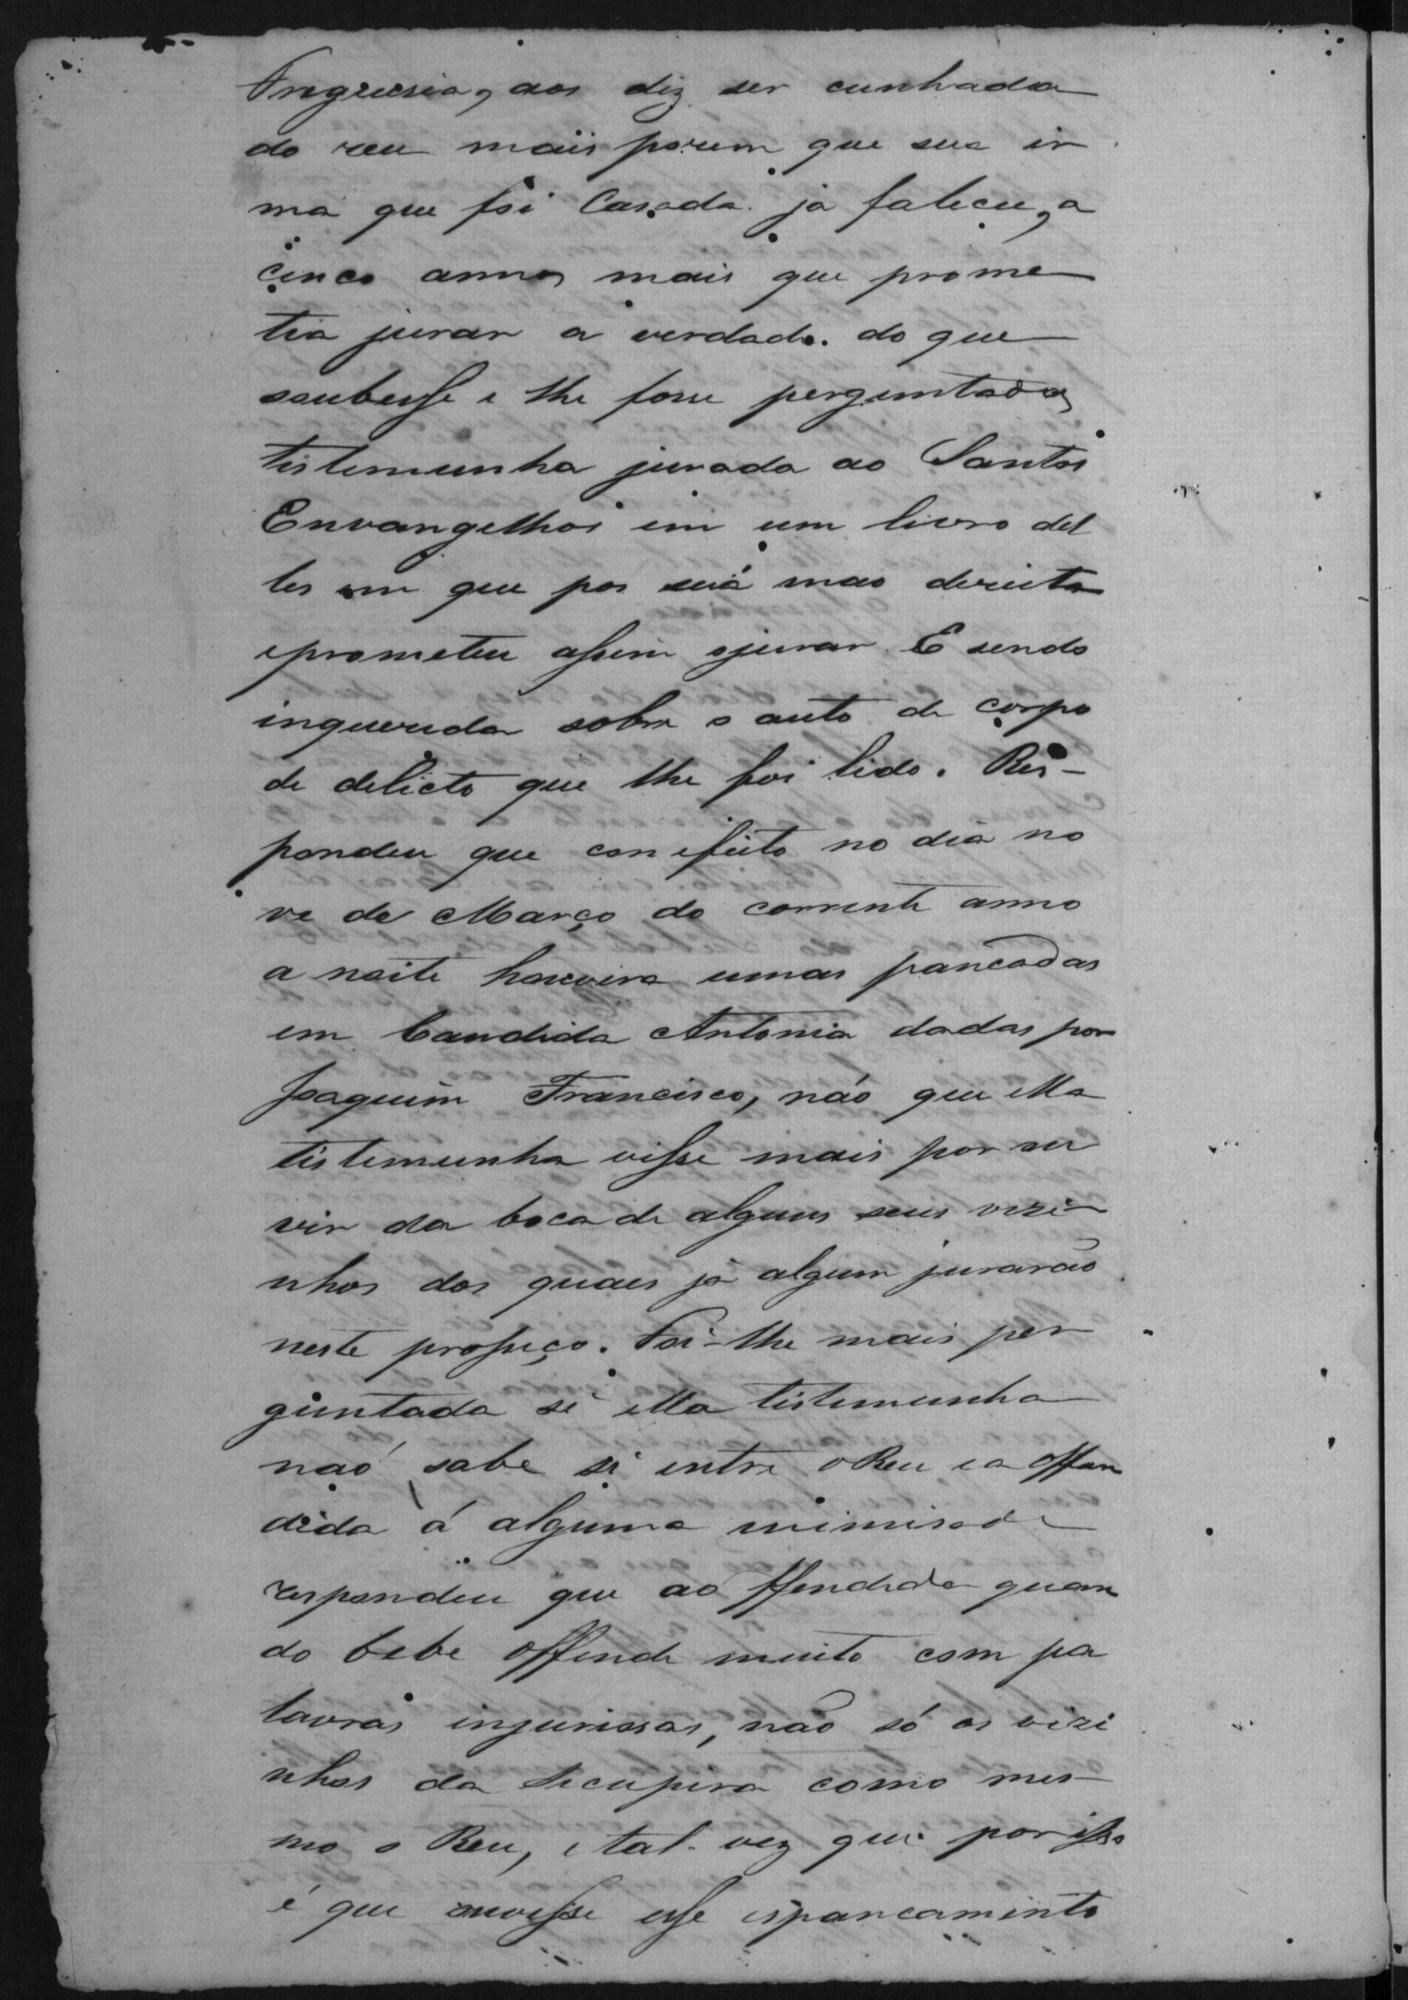 Freguesia, aos diz ser cunhada
do reu mais porem que sua ir
mã que foi Casada já faleceu, a
cinco annos mais que prome
tia jurar a verdade do que
soubesse e lhe fosse perguntada,
testemunha jurada ao Santos
Envangelhos em um livro del
les em que pos suá mao dereita
eprometeu assim ojurar E sendo
inquerida sobre o auto de corpo
de delicto que lhe foi lido. Res-
pondeu que con efeito no dia no
ve de Março do corrente anno
a noite houvera umas pancadas
em Candida Antonia dadas por
Joaquim Francisco, não que ella
testemunha visse mais por ou
vir da boca de alguns seus vezi
nhos dos quaes já algum jurarão
neste prosseço. Foi-lhe mais per
guntada se ella testemunha
naó sabe si entre oReu e a offen
dida á alguma inimisade
respondeu que ao ffendida quan
do bebe offende muito com pa
lavras injuriosas, não só os vizi
nhos da Secupira como mes-
mo o Reu, e tal vez que por isso
é que ouvesse esse espancamento